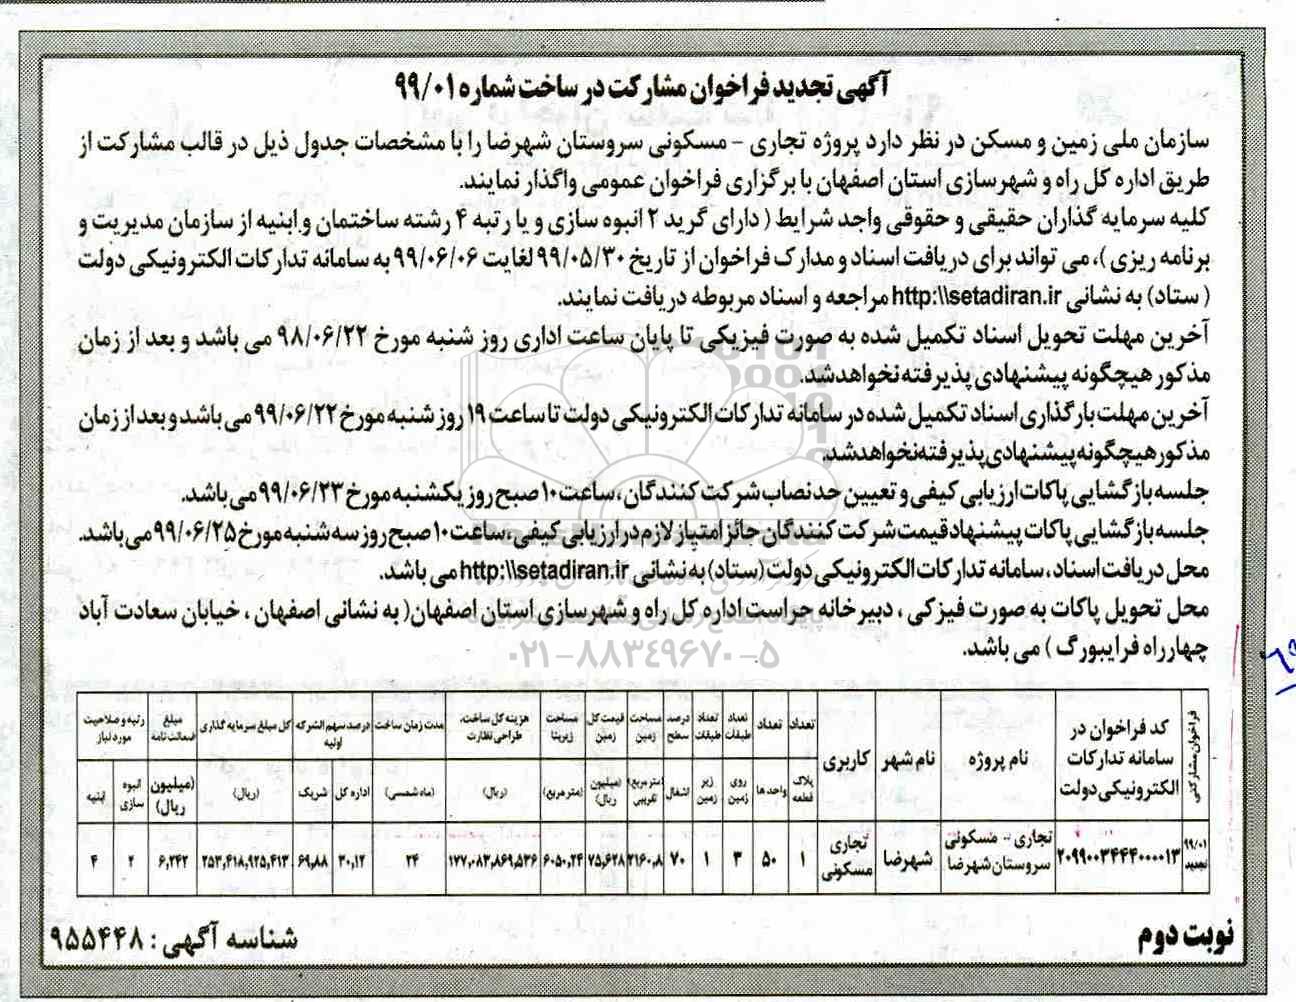 آگهی تجدید فراخوان مشارکت در ساخت شماره ۹۹/۰۱
سازمان ملی زمین و مسکن در نظر دارد پروژه تجاری – مسکونی سروستان شهرضا را با مشخصات جدول ذیل در قالب مشارکت از
طریق اداره کل راه و شهرسازی استان اصفهان با برگزاری فراخوان عمومی واگذار نمایند.
کلیه سرمایه گذاران حقیقی و حقوقی واجد شرایط ( دارای گرید ۲ انبوه سازی و یا رتبه ۴ رشته ساختمان و ابنیه از سازمان مدیریت و
برنامه ریزی )، می تواند برای دریافت اسناد و مدارک فراخوان از تاریخ ۹۹/۰۵/۳۰ لغایت ۹۹/۰۶/۰۶ به سامانه تدارکات الکترونیکی دولت
( ستاد) به نشانی http:\\setadiran.ir مراجعه و اسناد مربوطه دریافت نمایند.
آخرین مهلت تحویل اسناد تکمیل شده به صورت فیزیکی تا پایان ساعت اداری روز شنبه مورخ ۹۸/۰۶/۲۲ می باشد و بعد از زمان
مذکور هیچگونه پیشنهادی پذیرفته نخواهد شد.
آخرین مهلت بارگذاری اسناد تکمیل شده در سامانه تدارکات الکترونیکی دولت تا ساعت ۱۹ روز شنبه مورخ ۹۹/۰۶/۲۲ می باشد و بعد از زمان
مذکور هیچگونه پیشنهادی پذیرفته نخواهد شد.
جلسه بازگشایی پاکات ارزیابی کیفی و تعیین حد نصاب شرکت کنندگان، ساعت ۱۰ صبح روز یکشنبه مورخ ۹۹/۰۶/۲۳ می باشد.
جلسه بازگشایی پاکات پیشنهاد قیمت شرکت کنندگان حائز امتیاز لازم در ارزیابی کیفی، ساعت ۱۰ صبح روز سه شنبه مورخ ۹۹/۰۶/۲۵ می باشد.
محل دریافت اسناد، سامانه تدارکات الکترونیکی دولت (ستاد) به نشانی http:\\setadiran.ir می باشد.
محل تحویل پاکات به صورت فیزکی ، دبیرخانه حراست اداره کل راه و شهرسازی استان اصفهان( به نشانی اصفهان ، خیابان سعادت آباد
چهارراه فرایبورگ ) می باشد.
۰۲۱-۸۸۳۴۹۶۷۰-۵
فراخوان مشارکتی | کد فراخوان در سامانه تدارکات الکترونیکی دولت | نام پروژه | نام شهر | کاربری | تعداد پلاک قطعه | تعداد واحد ها | تعداد طبقات روی زمین | تعداد طبقات زیر زمین | درصد سطح اشغال | مساحت زمین (متر مربع) تقریبی | قیمت کل زمین (میلیون ریال) | مساحت زیربنا (متر مربع) | هزینه کل ساخت، طراحی نظارت (ریال) | مدت زمان ساخت (ماه شمسی) | درصد سهم الشرکه اولیه اداره کل | شریک | کل مبلغ سرمایه گذاری (ریال) | مبلغ ضمانت نامه (میلیون ریال) | رتبه و صلاحیت مورد نیاز انبوه سازی | ابنیه
۹۹/۰۱ تجدید | ۲۰۹۹۰۰۳۴۴۴۰۰۰۰۱۳ | تجاری - مسکونی سروستان شهرضا | شهرضا | تجاری مسکونی | ۱ | ۵۰ | ۳ | ۱ | ۷۰ | ۲۱۶۰,۸ | ۷۵,۶۲۸ | ۶۰۵۰,۲۴ | ۱۷۷,۰۸۳,۸۶۹,۵۳۶ | ۲۴ | ۳۰,۱۲ | ۶۹,۸۸ | ۲۵۳,۴۱۸,۹۲۵,۴۱۳ | ۶,۲۴۲ | ۲ | ۴
نوبت دوم
شناسه آگهی : ۹۵۵۴۴۸